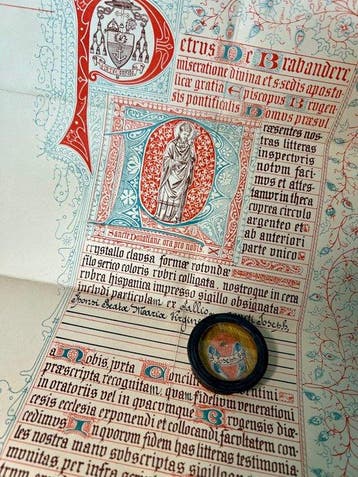 Petrus De Brabandere,
miseratione divina et s. sedis aposto
licæ gratia Episcopus Brugen
sis pontificalis Domus præsul
Præsentes nos
tras litteras
inspecturis
notum faci
mus et attes
tamur in theca
cuprea circulo
argenteo et
ab anteriori
parte unico
Sancte Donatiane ora pro nobis
crystallo clausa formæ rotundæ
filo serico coloris rubri colligata, nostroque in cera
rubra hispanica impresso sigillo obsignata
includi particulam ex Pallio
Sponsi Beatæ Mariæ Virginis Joseph
a Nobis juxta Concilii
præscripta recognitam, quam fidelium venerationi
in oratoriis vel in quacumque Brugensis diœ
cesis ecclesia exponendi et collocandi facultatem con
cedimus. In quorum fidem has litteras testimonia
les nostra manu subscriptas sigilloque
munitas, per infra